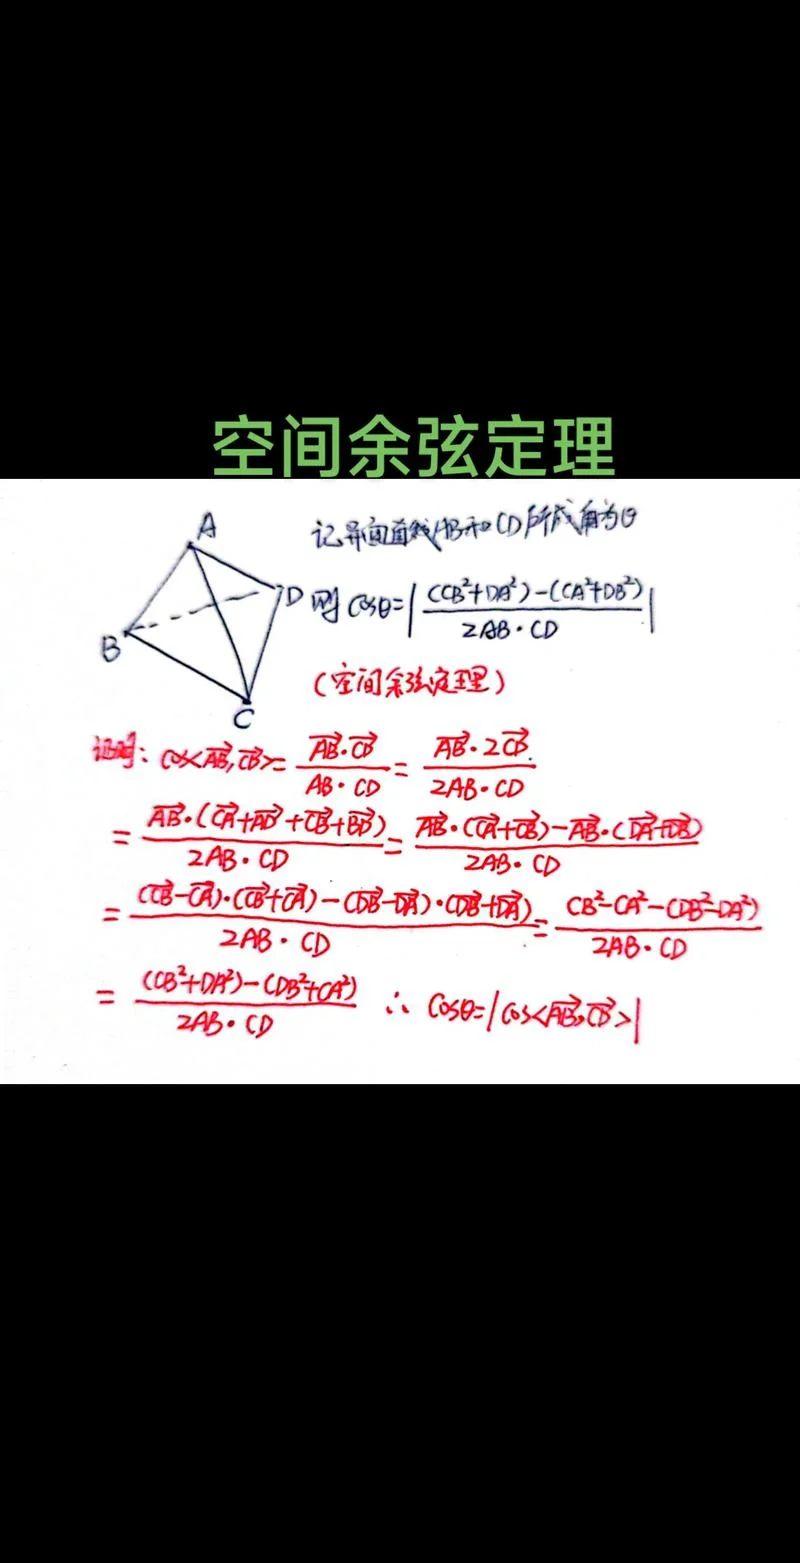 空间余弦定理
A
B
C
D
记异面直线AB和CD所成角为θ
则 cosθ=|\frac{(CB²+DA²)-(CA²+DB²)}{2AB·CD}|
(空间余弦定理)
证明: cos<\vec{AB},\vec{CD}>=\frac{\vec{AB}·\vec{CD}}{AB·CD}=\frac{\vec{AB}·2\vec{CD}}{2AB·CD}
=\frac{\vec{AB}·(\vec{CA}+\vec{AD}+\vec{CB}+\vec{BD})}{2AB·CD}=\frac{\vec{AB}·(\vec{CA}+\vec{CB})-\vec{AB}·(\vec{DA}+\vec{DB})}{2AB·CD}
=\frac{(\vec{CB}-\vec{CA})·(\vec{CB}+\vec{CA})-(\vec{DB}-\vec{DA})·(\vec{DB}+\vec{DA})}{2AB·CD}=\frac{CB²-CA²-(DB²-DA²)}{2AB·CD}
=\frac{(CB²+DA²)-(DB²+CA²)}{2AB·CD} ∴ cosθ=|cos<\vec{AB},\vec{CD}>|